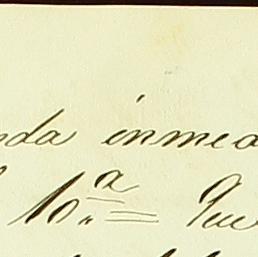 nda inmed
10.ª Que